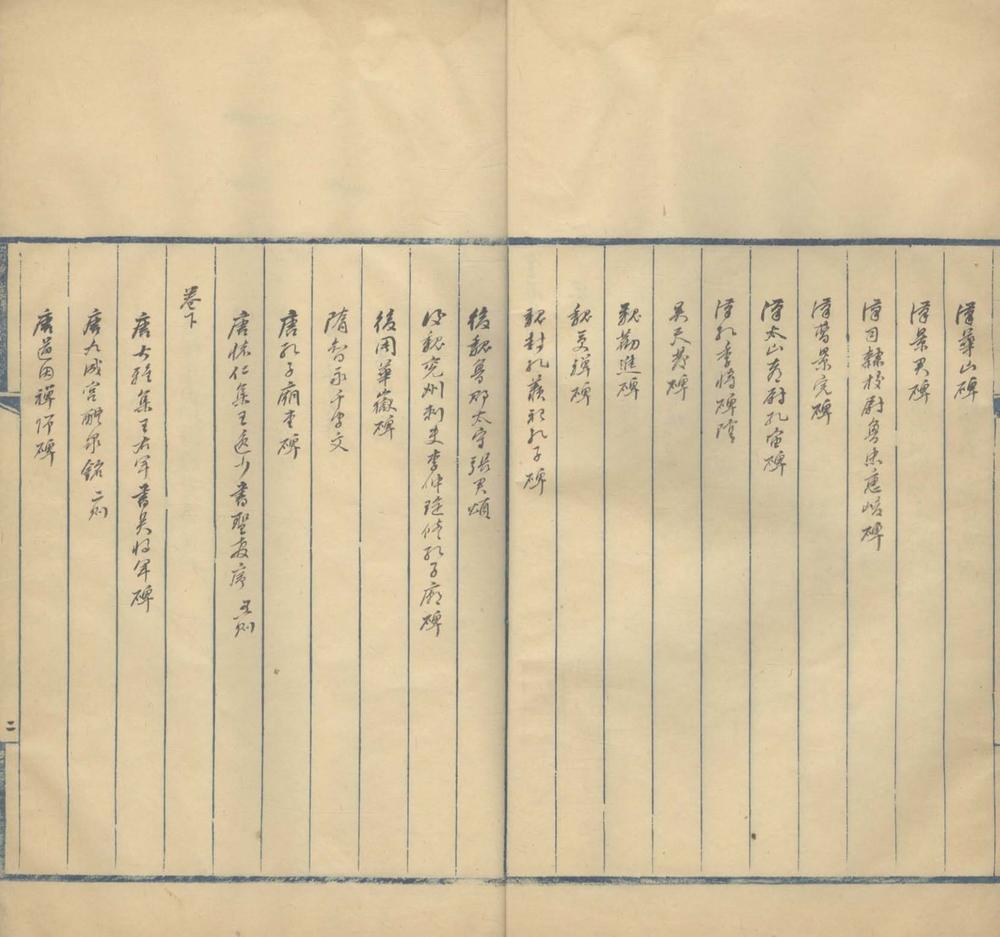 漢華山碑
漢景君碑
漢司隸校尉魯忠惠峻碑
漢曹景完碑
漢太山都尉孔宙碑
漢孔季將碑陰
吳天發碑
魏勸進碑
魏受禪碑
魏封孔羨祀孔子碑
後魏魯郡太守張君頌
後魏兗州刺史李仲琁修孔子廟碑
後周華嶽碑
隋智永千字文
唐孔子廟堂碑
唐懷仁集王逸少書聖教序 五則
卷下
唐大雅集王右軍書吳將軍碑
唐九成宮醴泉銘 二則
唐道因禪師碑
二